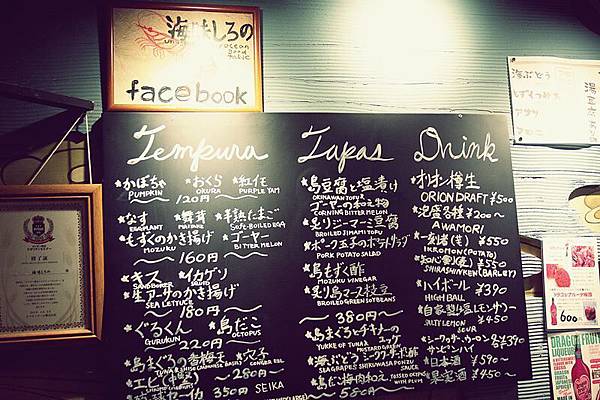 海味しろの
ocean
good
table
facebook
海ぶどう
Tempura
かぼちゃ
PUMPKIN
おくら
OKURA
紅イモ
PURPLE YAM
120円
なす
EGGPLANT
舞茸
MAITAKE
半熟たまご
SOFT-BOILED EGG
もずくのかき揚げ
MOZUKU
ゴーヤー
BITTER MELON
160円
キス
SAND BORER
イカゲソ
SQUID
生アーサのかき揚げ
SEA LETTUCE
180円
ぐるくん
GURUKUN
島だこ
OCTOPUS
220円
島まぐろの香梅天
穴子
CONGER EEL
280円
350円
SEIKA
Tapas
島豆腐と塩漬け
OKINAWAN TOFU
ゴーヤーの和え物
CORNING BITTER MELON
炙りジーマーミ豆腐
BROILED JIMAMI TOFU
ポーク玉子のポテトサラダ
PORK POTATO SALAD
島もずく酢
MOZUKU VINEGAR
炙り島マース枝豆
BROILED GREEN SOYBEANS
380円
島まぐろとチキナーのユッケ
YUKKE OF TUNA &
MUSTARD GREEN
海ぶどうシークワーサーポン酢
SEA GRAPES SHIKUWASA PONZU SAUCE
島だこ梅肉和え
WITH PLUM
580円
Drink
オリオン樽生
ORION DRAFT ¥500
泡盛各種 ¥200～
AWAMORI
一刻者(芋) ¥550
IKKOMON (POTATO)
¥550
SHIRASHINKEN (BARLEY)
ハイボール ¥390
HIGH BALL
自家製塩レモンサワー
SALTY LEMON SOUR ¥450
シークワーサー、ウーロン 各¥390
サンピンハイ
日本酒 ¥590～
果実酒 ¥450～
修了証
600
DRAGON FRUIT
LIQUEUR